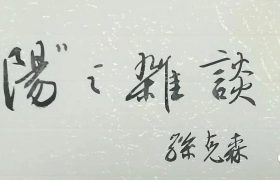 陽"之雜談
孫克森